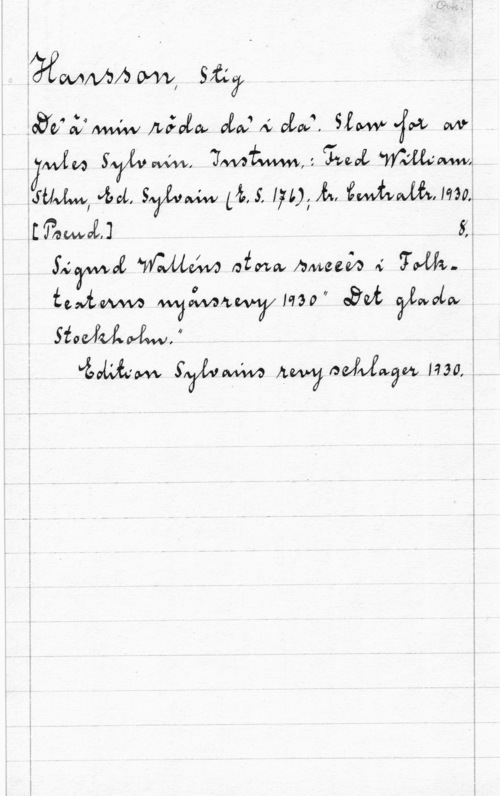 Hansson, Stig
De' ä' min röda da' i da'. Slow fox av
Jules Sylvain. Instrum.: Fred William.
Sthlm, Ed. Sylvain (E. S. 176); tr. Centraltr. 1930.
[Pseud.] 8.
Sigurd Walléns stora succés i Folk-
teaterns nyårsrevy 1930 "Det glada
Stockholm."
Edition Sylvains revyschlager 1930.